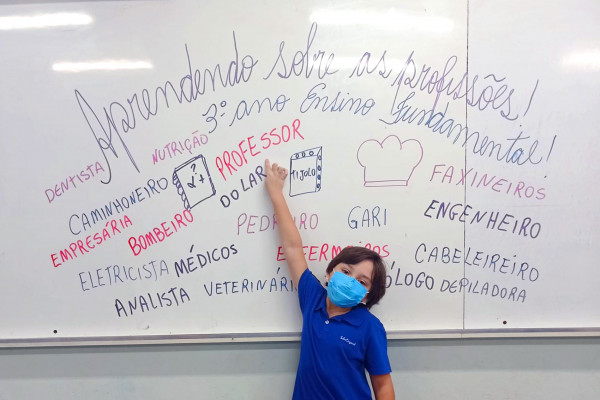 Aprendendo sobre as profissões!
3º ano Ensino Fundamental!
DENTISTA NUTRIÇÃO PROFESSOR FAXINEIROS
CAMINHONEIRO DO LAR TIJOLO
EMPRESÁRIA BOMBEIRO PEDREIRO GARI ENGENHEIRO
ELETRICISTA MÉDICOS ENFERMEIROS CABELEIREIRO
ANALISTA VETERINÁRI ÓLOGO DEPILADORA